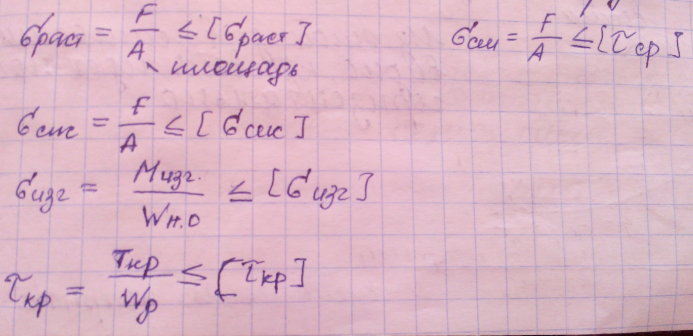 σраст = F/A ≤ [σраст]
площадь
σсм = F/A ≤ [τср]
σсж = F/A ≤ [σсж]
σизг = Mизг./Wн.о ≤ [σизг]
τкр = Tкр/Wp ≤ [τкр]